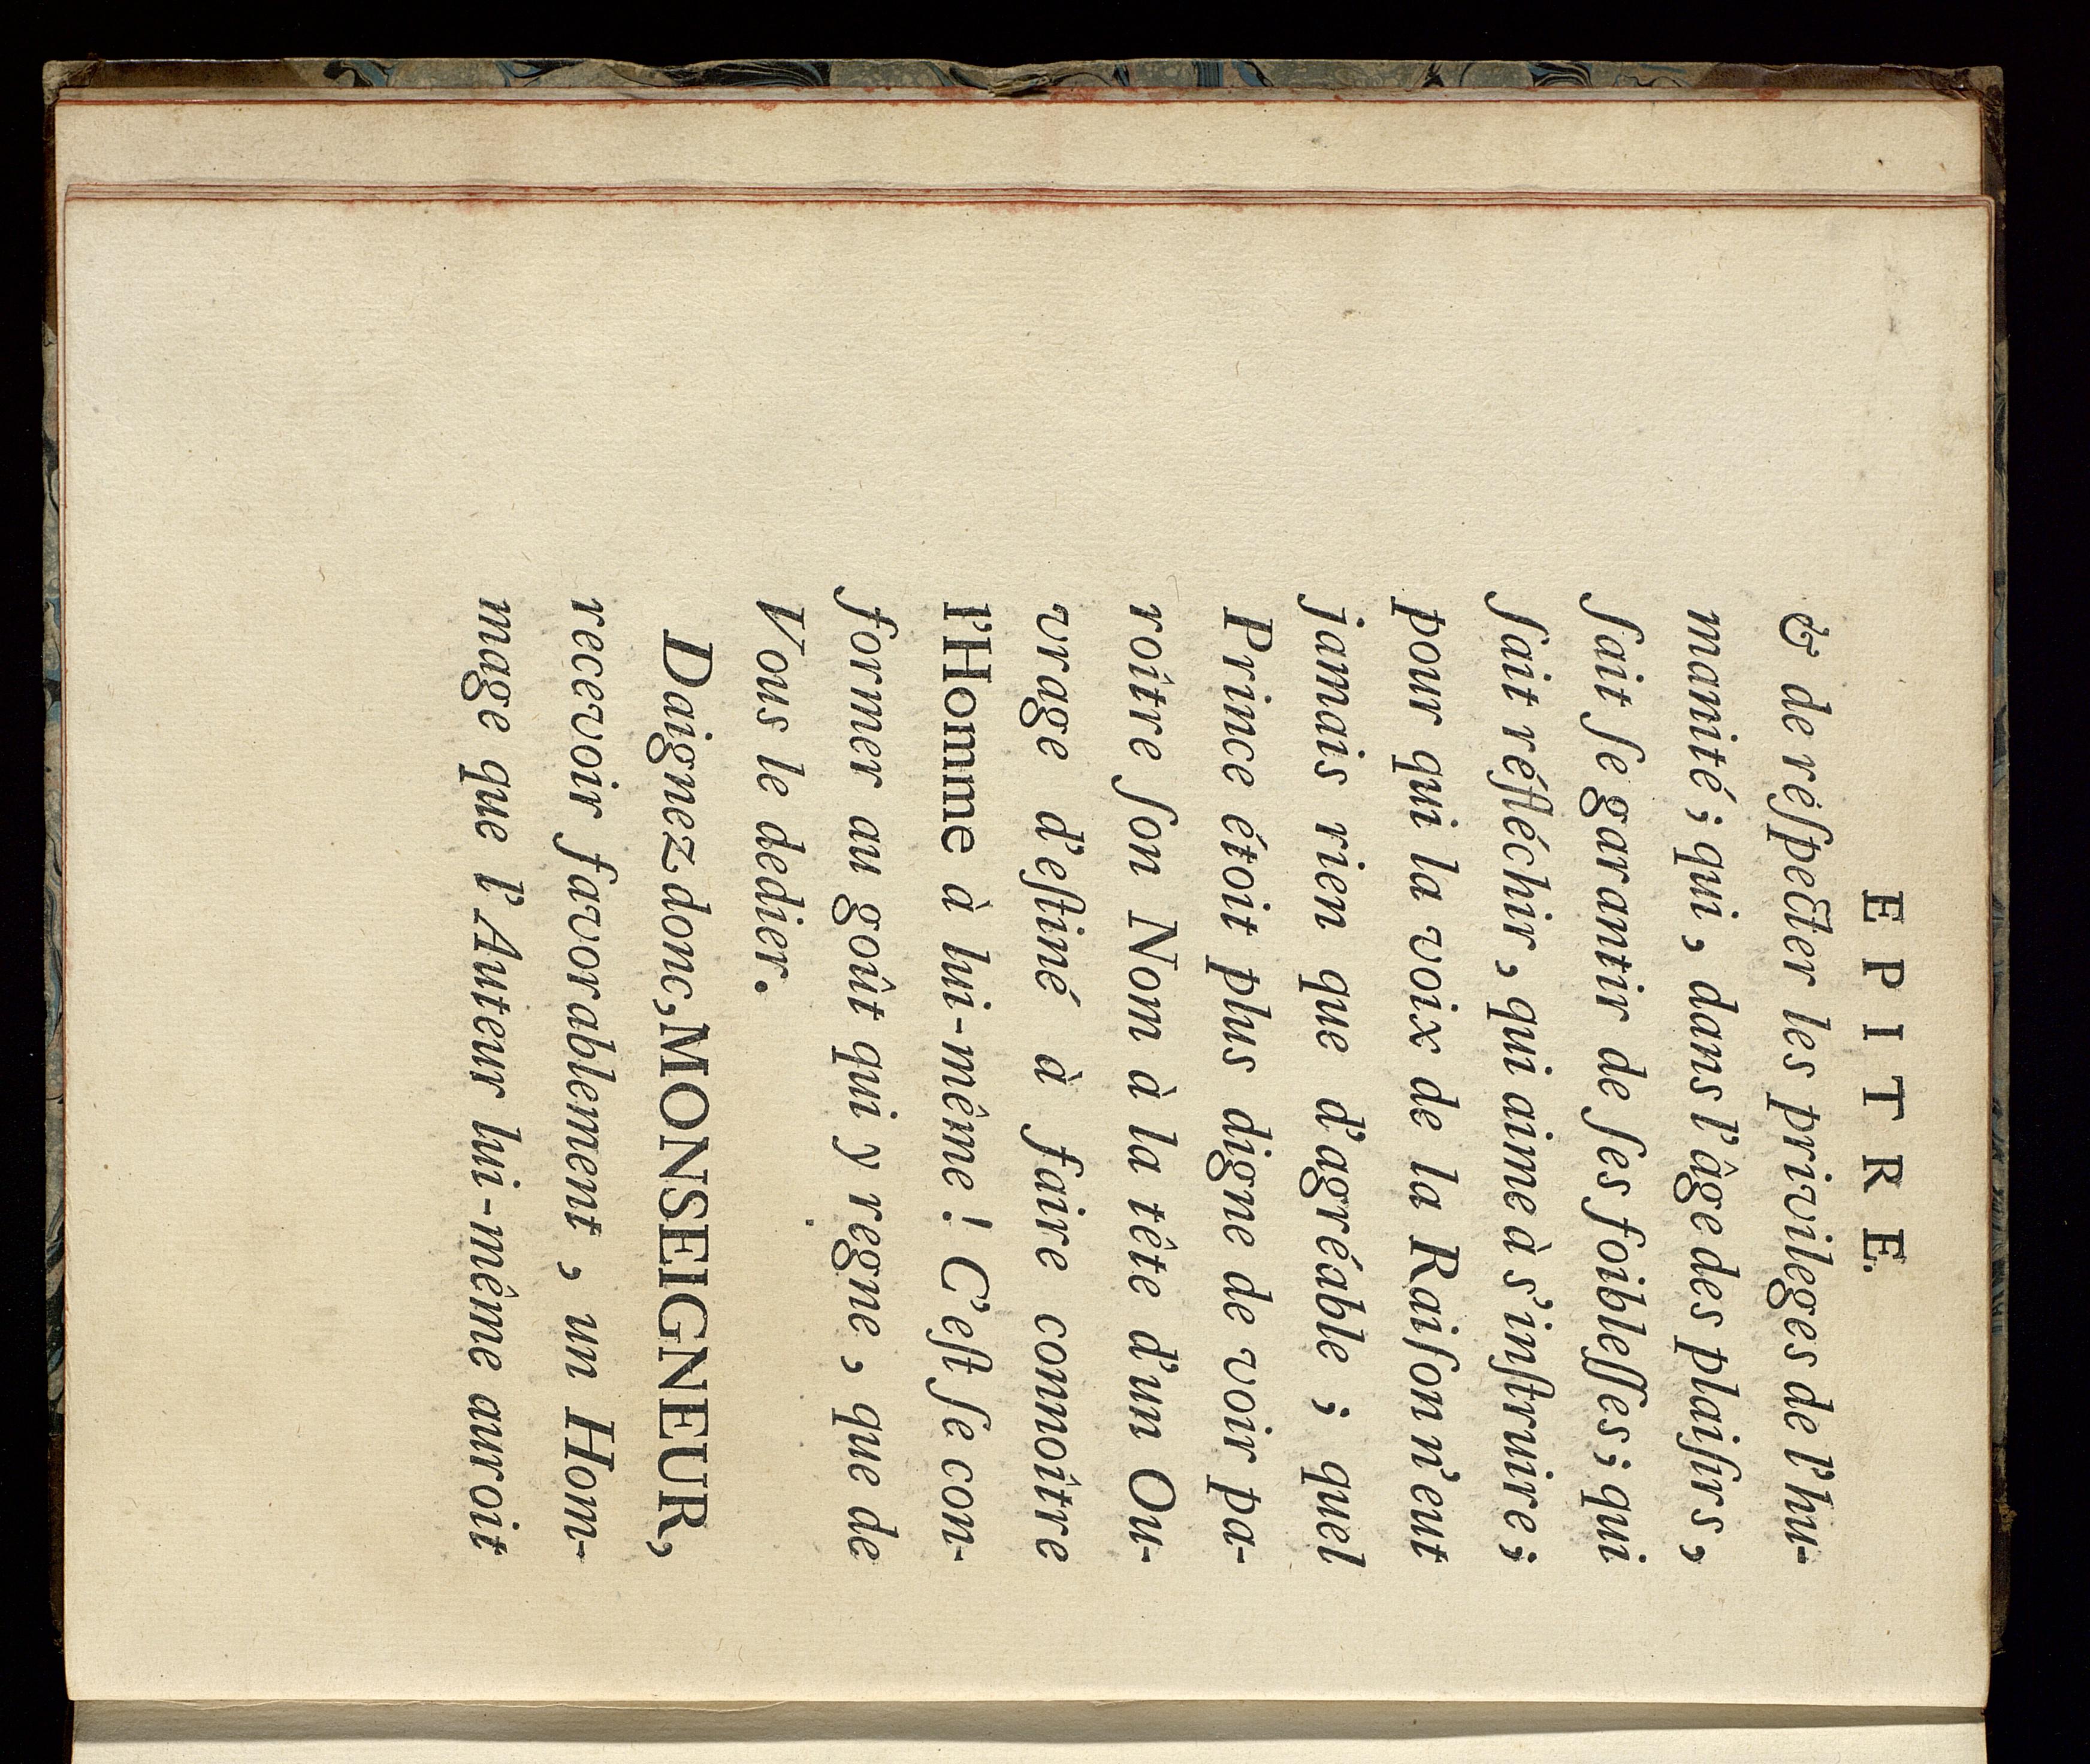 EPITRE.
& de réſpecter les privileges de l'hu-
manité ; qui, dans l'âge des plaiſirs,
ſait ſe garantir de ſes foibleſſes ; qui
ſait réfléchir, qui aime à s'inſtruire ;
pour qui la voix de la Raiſon n'eut
jamais rien que d'agréable ; quel
Prince étoit plus digne de voir pa-
roître ſon Nom à la tête d'un Ou-
vrage d'eſtiné à faire connoître
l'Homme à lui-même ! C'eſt ſe con-
former au goût qui y regne, que de
Vous le dedier.
Daignez donc, MONSEIGNEUR,
recevoir favorablement, un Hom-
mage que l'Auteur lui-même auroit